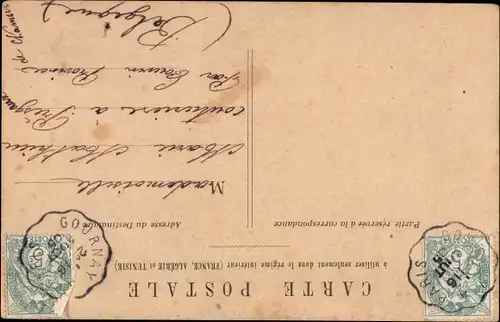 CARTE POSTALE
à utiliser seulement dans le régime intérieur (FRANCE, ALGÉRIE et TUNISIE)
Partie réservée à la correspondance
Adresse du Destinataire
Mademoiselle
Marie Mathieu
couturière à Presgaux
Par Couvin Province
de Namur
(Belgique)
GOURNAY
PARIS